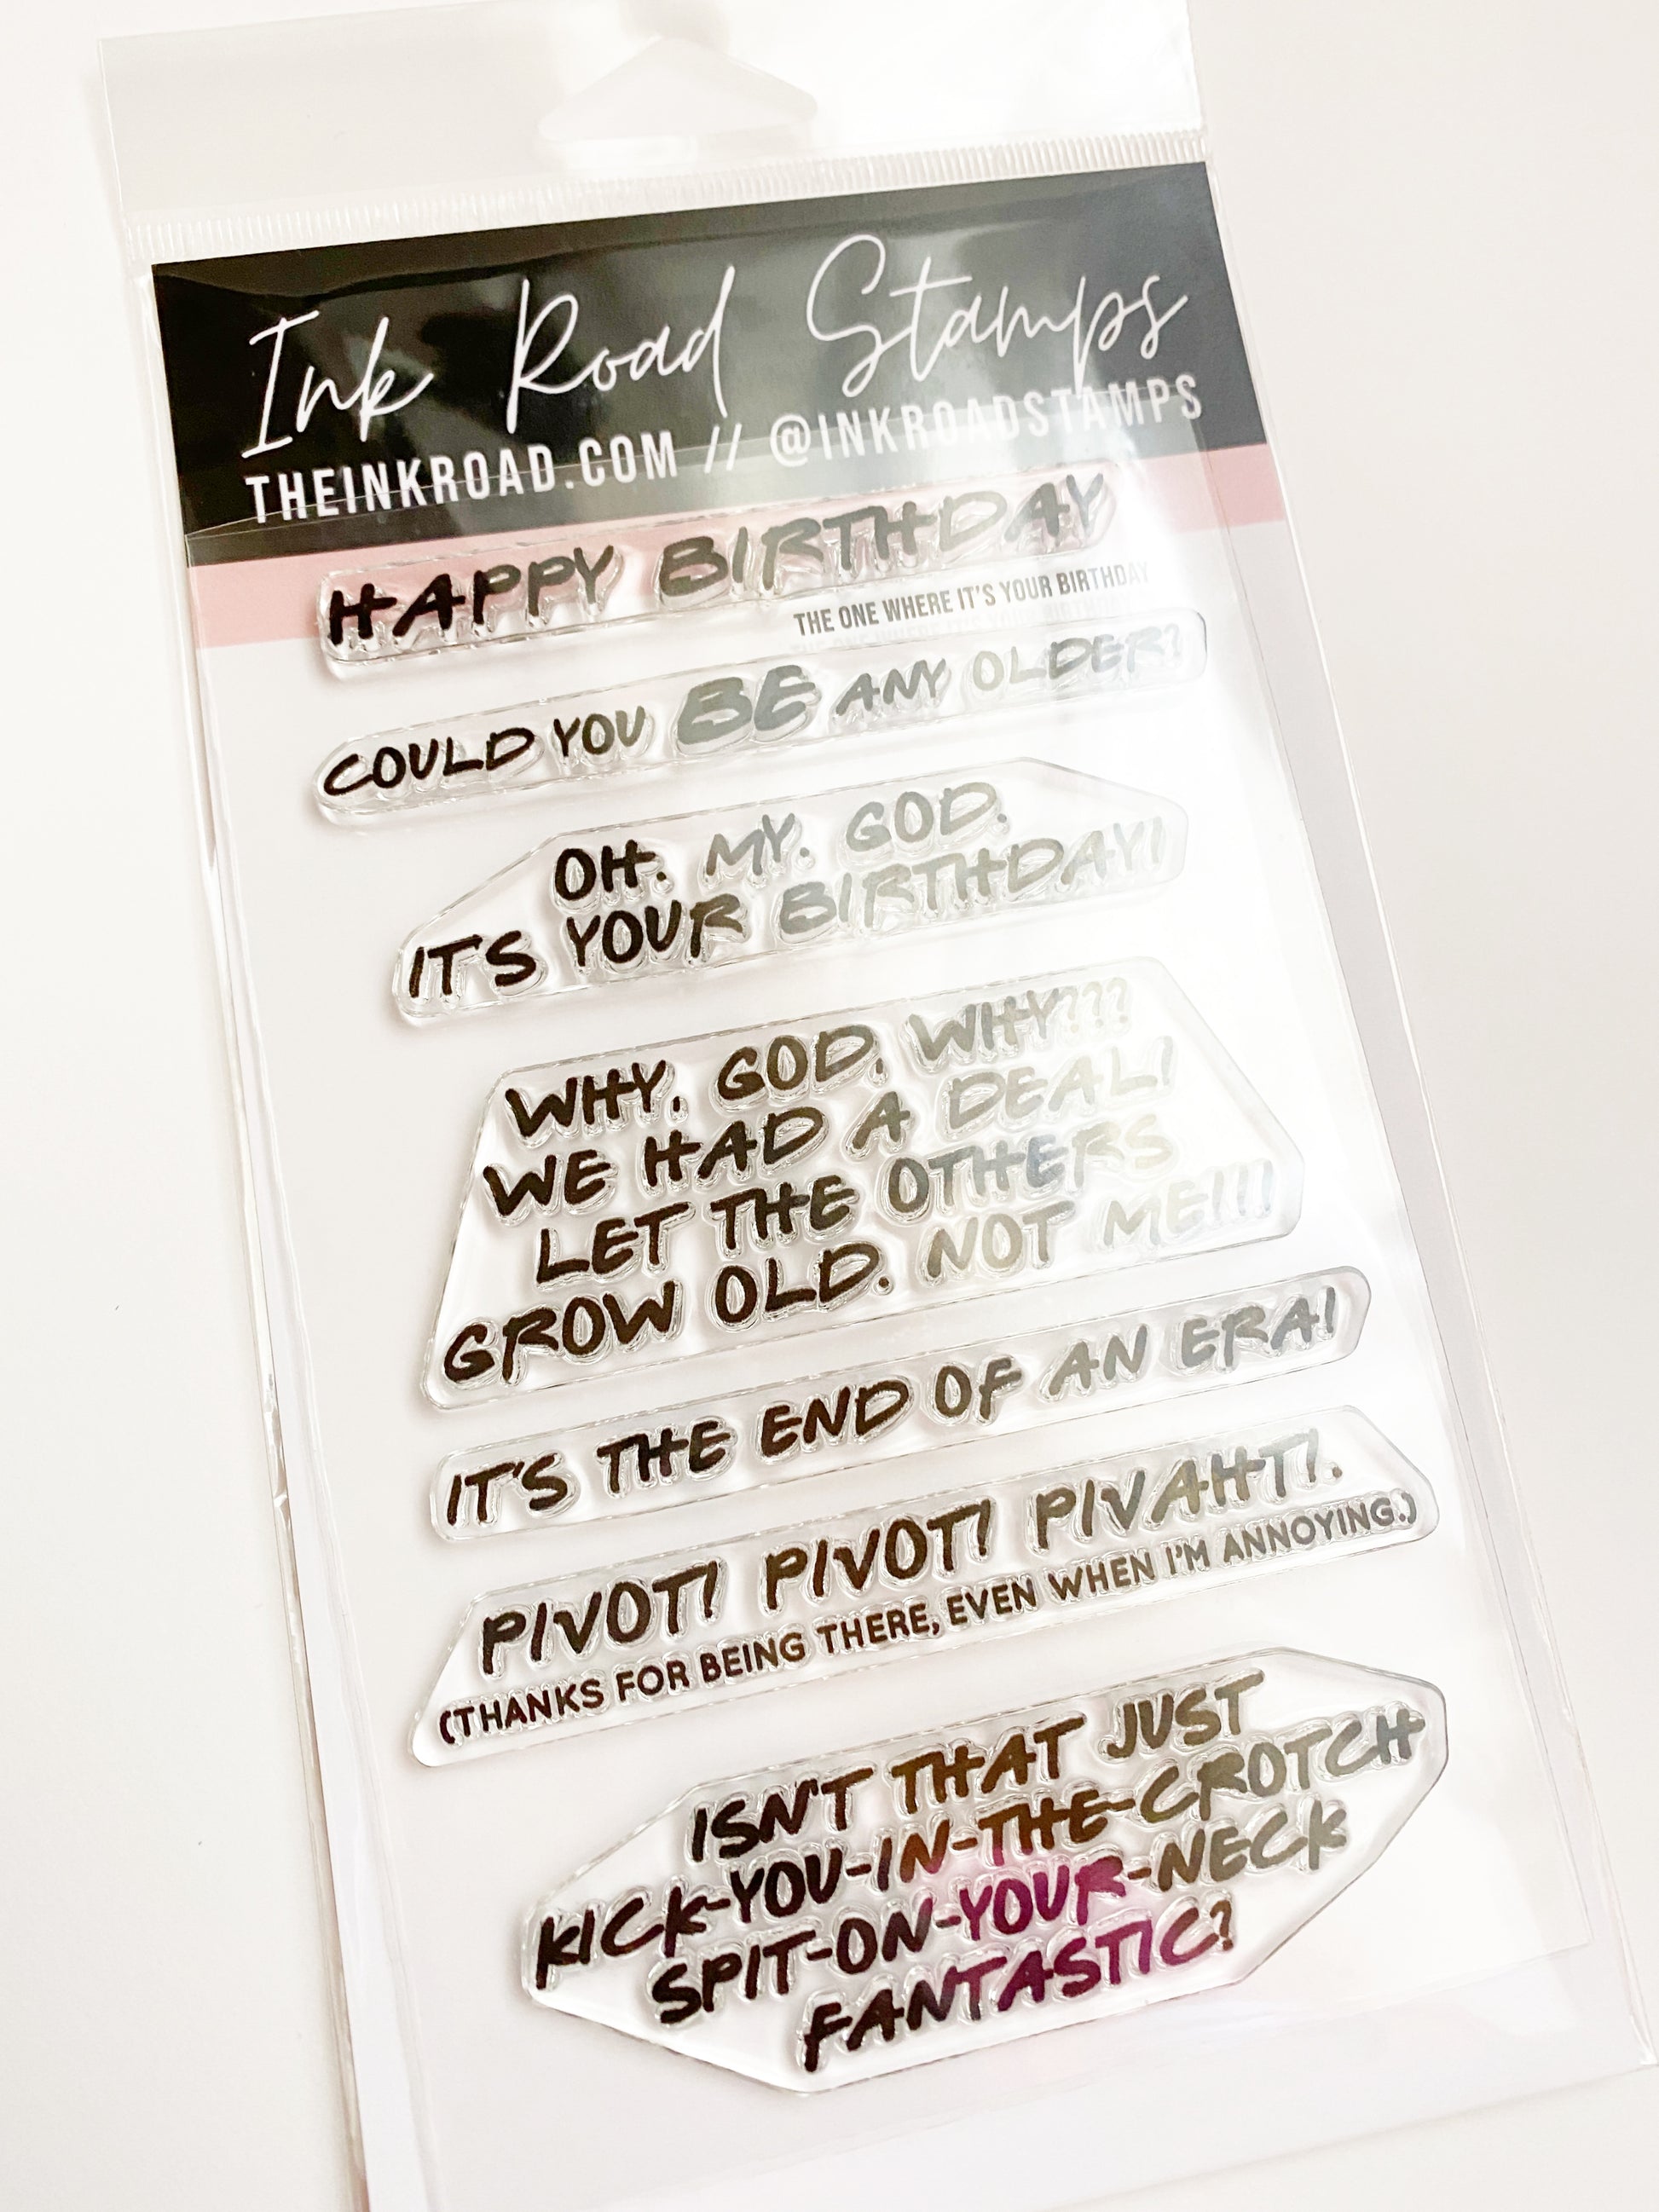 Ink Road Stamps
THEINKROAD.COM // @INKROADSTAMPS
HAPPY BIRTHDAY
THE ONE WHERE IT'S YOUR BIRTHDAY
COULD YOU BE ANY OLDER?
OH. MY. GOD.
ITS YOUR BIRTHDAY!
WHY, GOD, WHY???
WE HAD A DEAL!
LET THE OTHERS
GROW OLD. NOT ME!!!
IT'S THE END OF AN ERA!
PIVOT! PIVOT! PIVAHT!.
(THANKS FOR BEING THERE, EVEN WHEN I'M ANNOYING.)
ISN'T THAT JUST
KICK-YOU-IN-THE-CROTCH
SPIT-ON-YOUR-NECK
FANTASTIC?